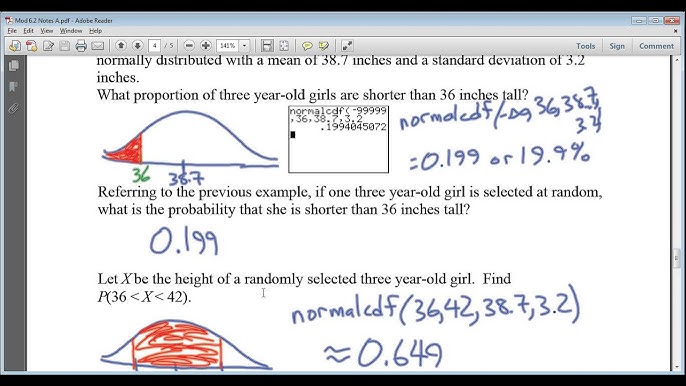 Mod 6.2 Notes A.pdf - Adobe Reader
4 / 5
141%
Tools
Sign
Comment
normally distributed with a mean of 38.7 inches and a standard deviation of 3.2
inches.
What proportion of three year-old girls are shorter than 36 inches tall?
normalcdf(-99999
,36,38.7,3.2
.1994045072
normalcdf(-∞,36,38.7,
3.2
= 0.199 or 19.9%
36
38.7
Referring to the previous example, if one three year-old girl is selected at random,
what is the probability that she is shorter than 36 inches tall?
0.199
Let X be the height of a randomly selected three year-old girl. Find
P(36 < X < 42).
normalcdf(36,42,38.7,3.2)
≈ 0.649